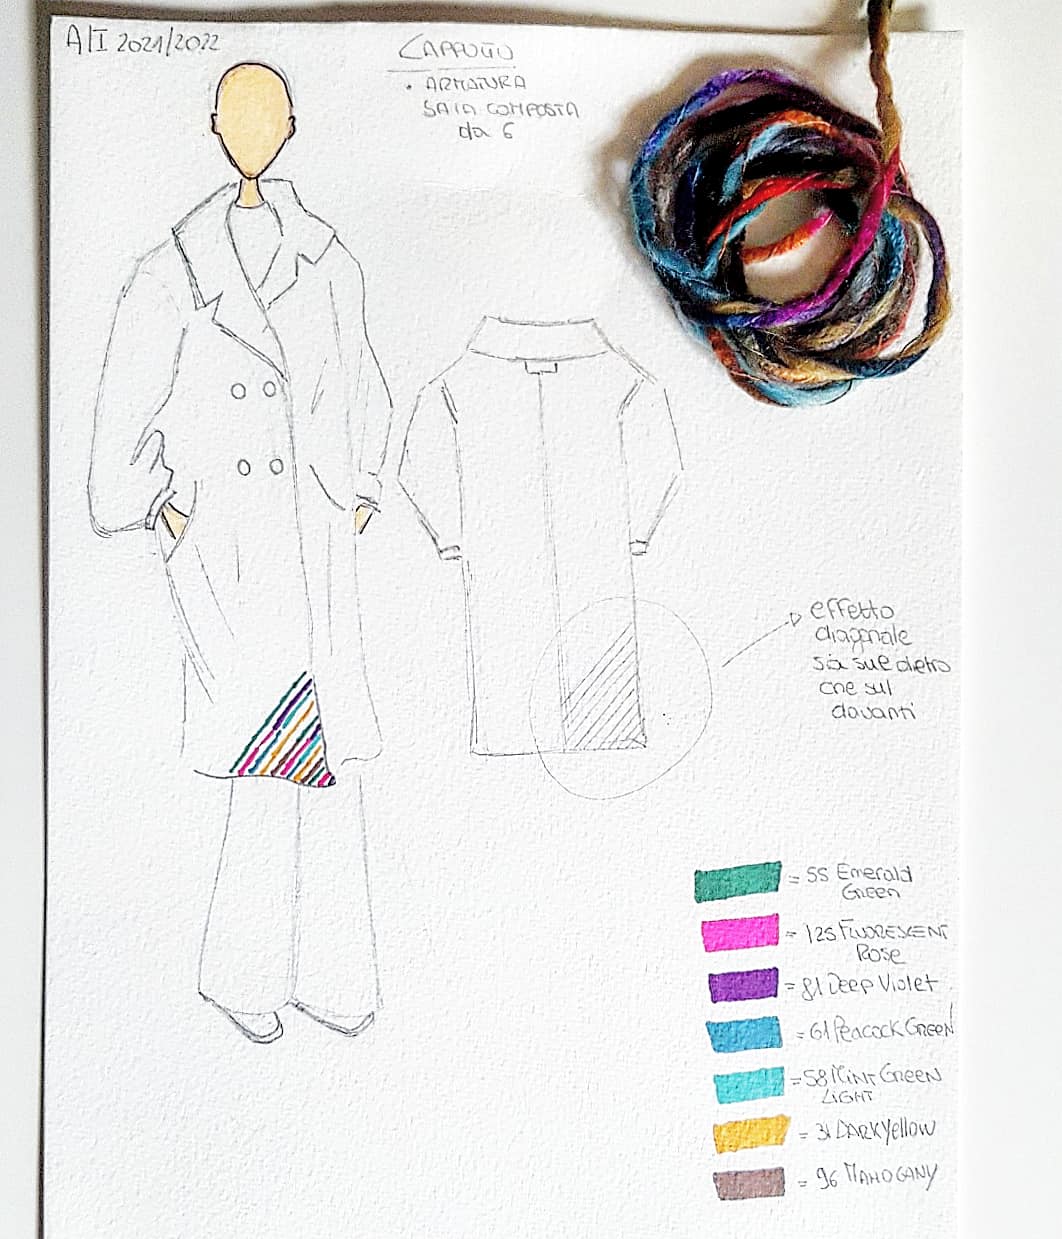 A/I 2021/2022
CAPPOTTO
• ARMATURA
SAIA COMPOSTA
da 6
effetto
diagonale
sia sul dietro
che sul
davanti
= 55 Emerald
Green
= 125 FLUORESCENT
Rose
= 81 Deep Violet
= 61 Peacock Green
= 58 Mint Green
LIGHT
= 31 DARK Yellow
= 96 MAHOGANY